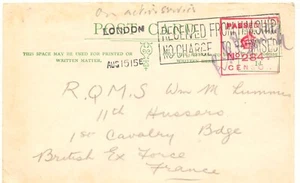 On active service
POST CARD
LONDON
RECEIVED FROM H.M. SHIP
NO CHARGE TO BE RAISED
PASSED
No 2841
CENSOR
THIS SPACE MAY BE USED FOR PRINTED OR
WRITTEN MATTER.
AUG 19 15
R.Q.M.S Wm M Lummis
11th Hussars
1st Cavalry Bdge
British Ex Force
France